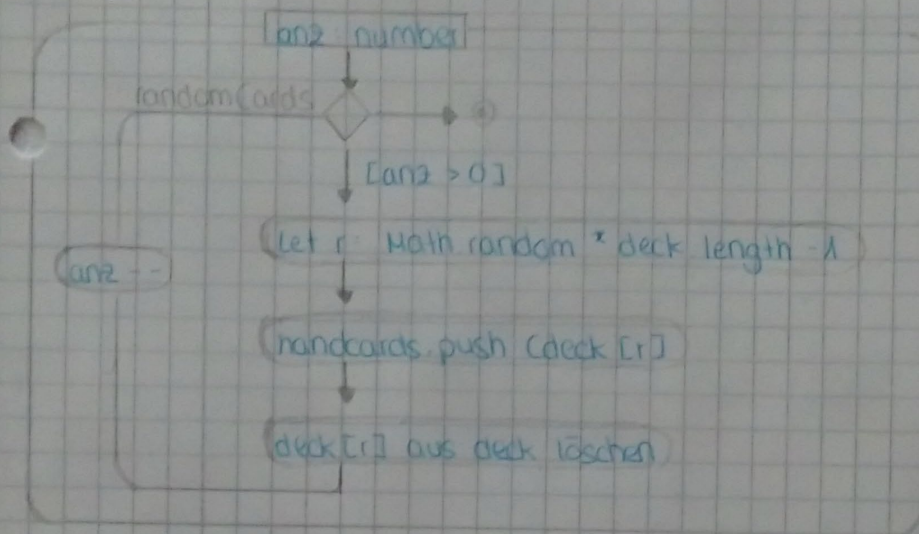 anz: number
randomCards
[anz > 0]
let r: Math.random * deck.length - 1
anz --
handcards.push (deck[r]
deck[r] aus deck löschen